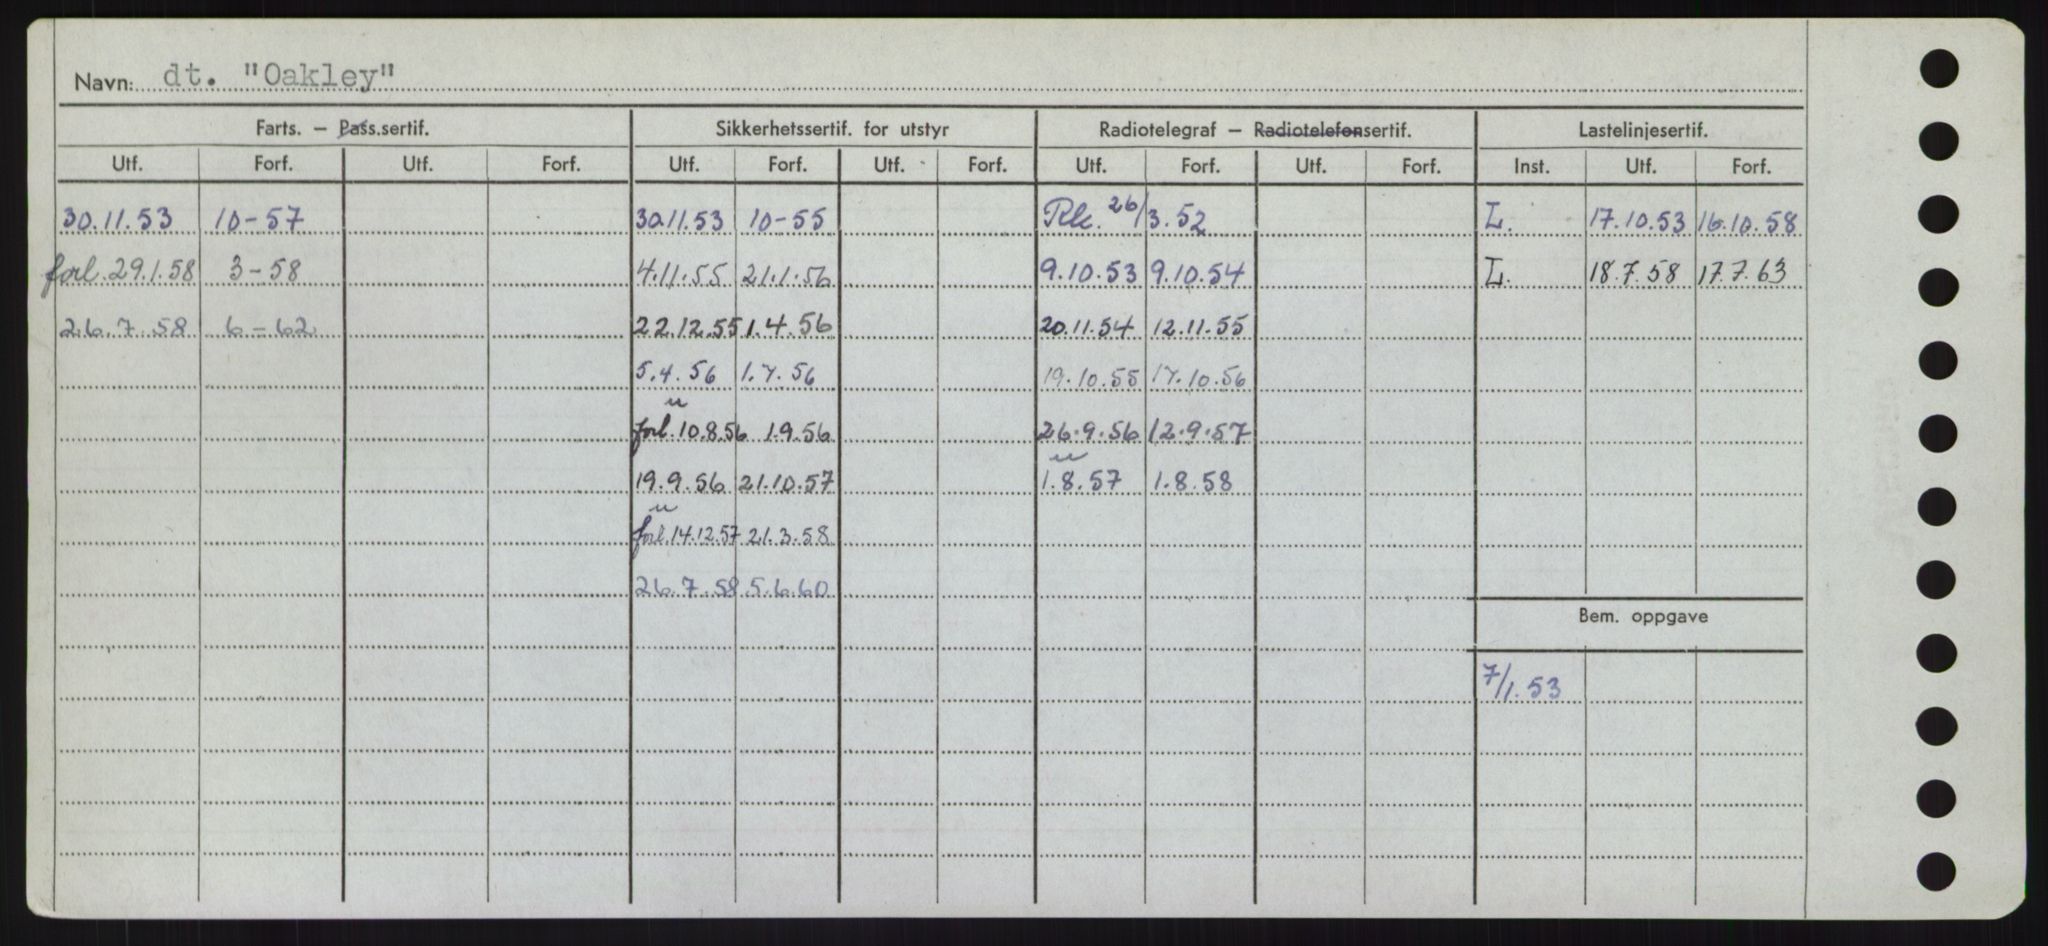 Navn: dt. "Oakley"
Farts. – Pass.sertif. Sikkerhetssertif. for utstyr Radiotelegraf – Radiotelefonsertif. Lastelinjesertif.
Utf. Forf. Utf. Forf. Utf. Forf. Utf. Forf. Utf. Forf. Utf. Forf. Inst. Utf. Forf.
30.11.53 10-57 30.11.53 10-55 Rk. 26/3.52 L. 17.10.53 16.10.58
forl. 29.1.58 3-58 4.11.55 21.1.56 9.10.53 9.10.54 L. 18.7.58 17.7.63
26.7.58 6-62 22.12.55 1.4.56 20.11.54 12.11.55
5.4.56 1.7.56 19.10.55 17.10.56
u
forl. 10.8.56 1.9.56 26.9.56 12.9.57
u
19.9.56 21.10.57 1.8.57 1.8.58
u
forl. 14.12.57 21.3.58
26.7.58 5.6.60
Bem. oppgave
7/1.53